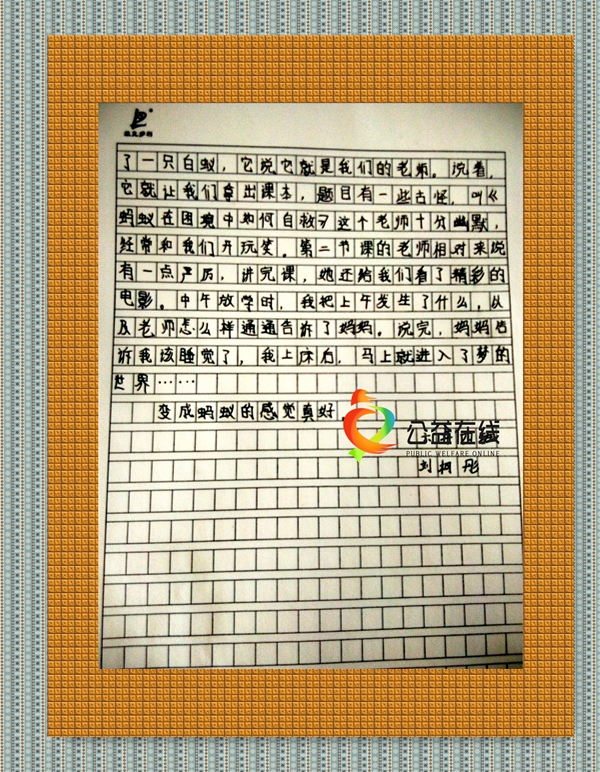 了一只白蚁，它说它就是我们的老师。说着，
它就让我们拿出课本，题目有一些古怪，叫《
蚂蚁在困境中如何自救》这个老师十分幽默，
经常和我们开玩笑。第二节课的老师相对来说
有一点严厉，讲完课，她还给我们看了精彩的
电影。中午放学时，我把上午发生了什么，以
及老师怎么样通通告诉了妈妈。说完，妈妈告
诉我该睡觉了，我上床后，马上就进入了梦的
世界……
变成蚂蚁的感觉真好。
公益在线
PUBLIC WELFARE ONLINE
刘柯彤